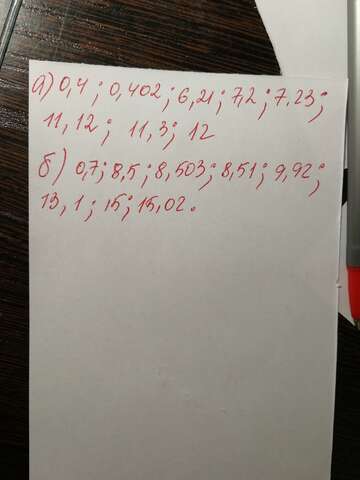 а) 0,4; 0,402; 6,21; 7,2; 7.23;
11,12; 11,3; 12
б) 0,7; 8,5; 8,503; 8,51; 9,92;
13,1; 15; 15,02.